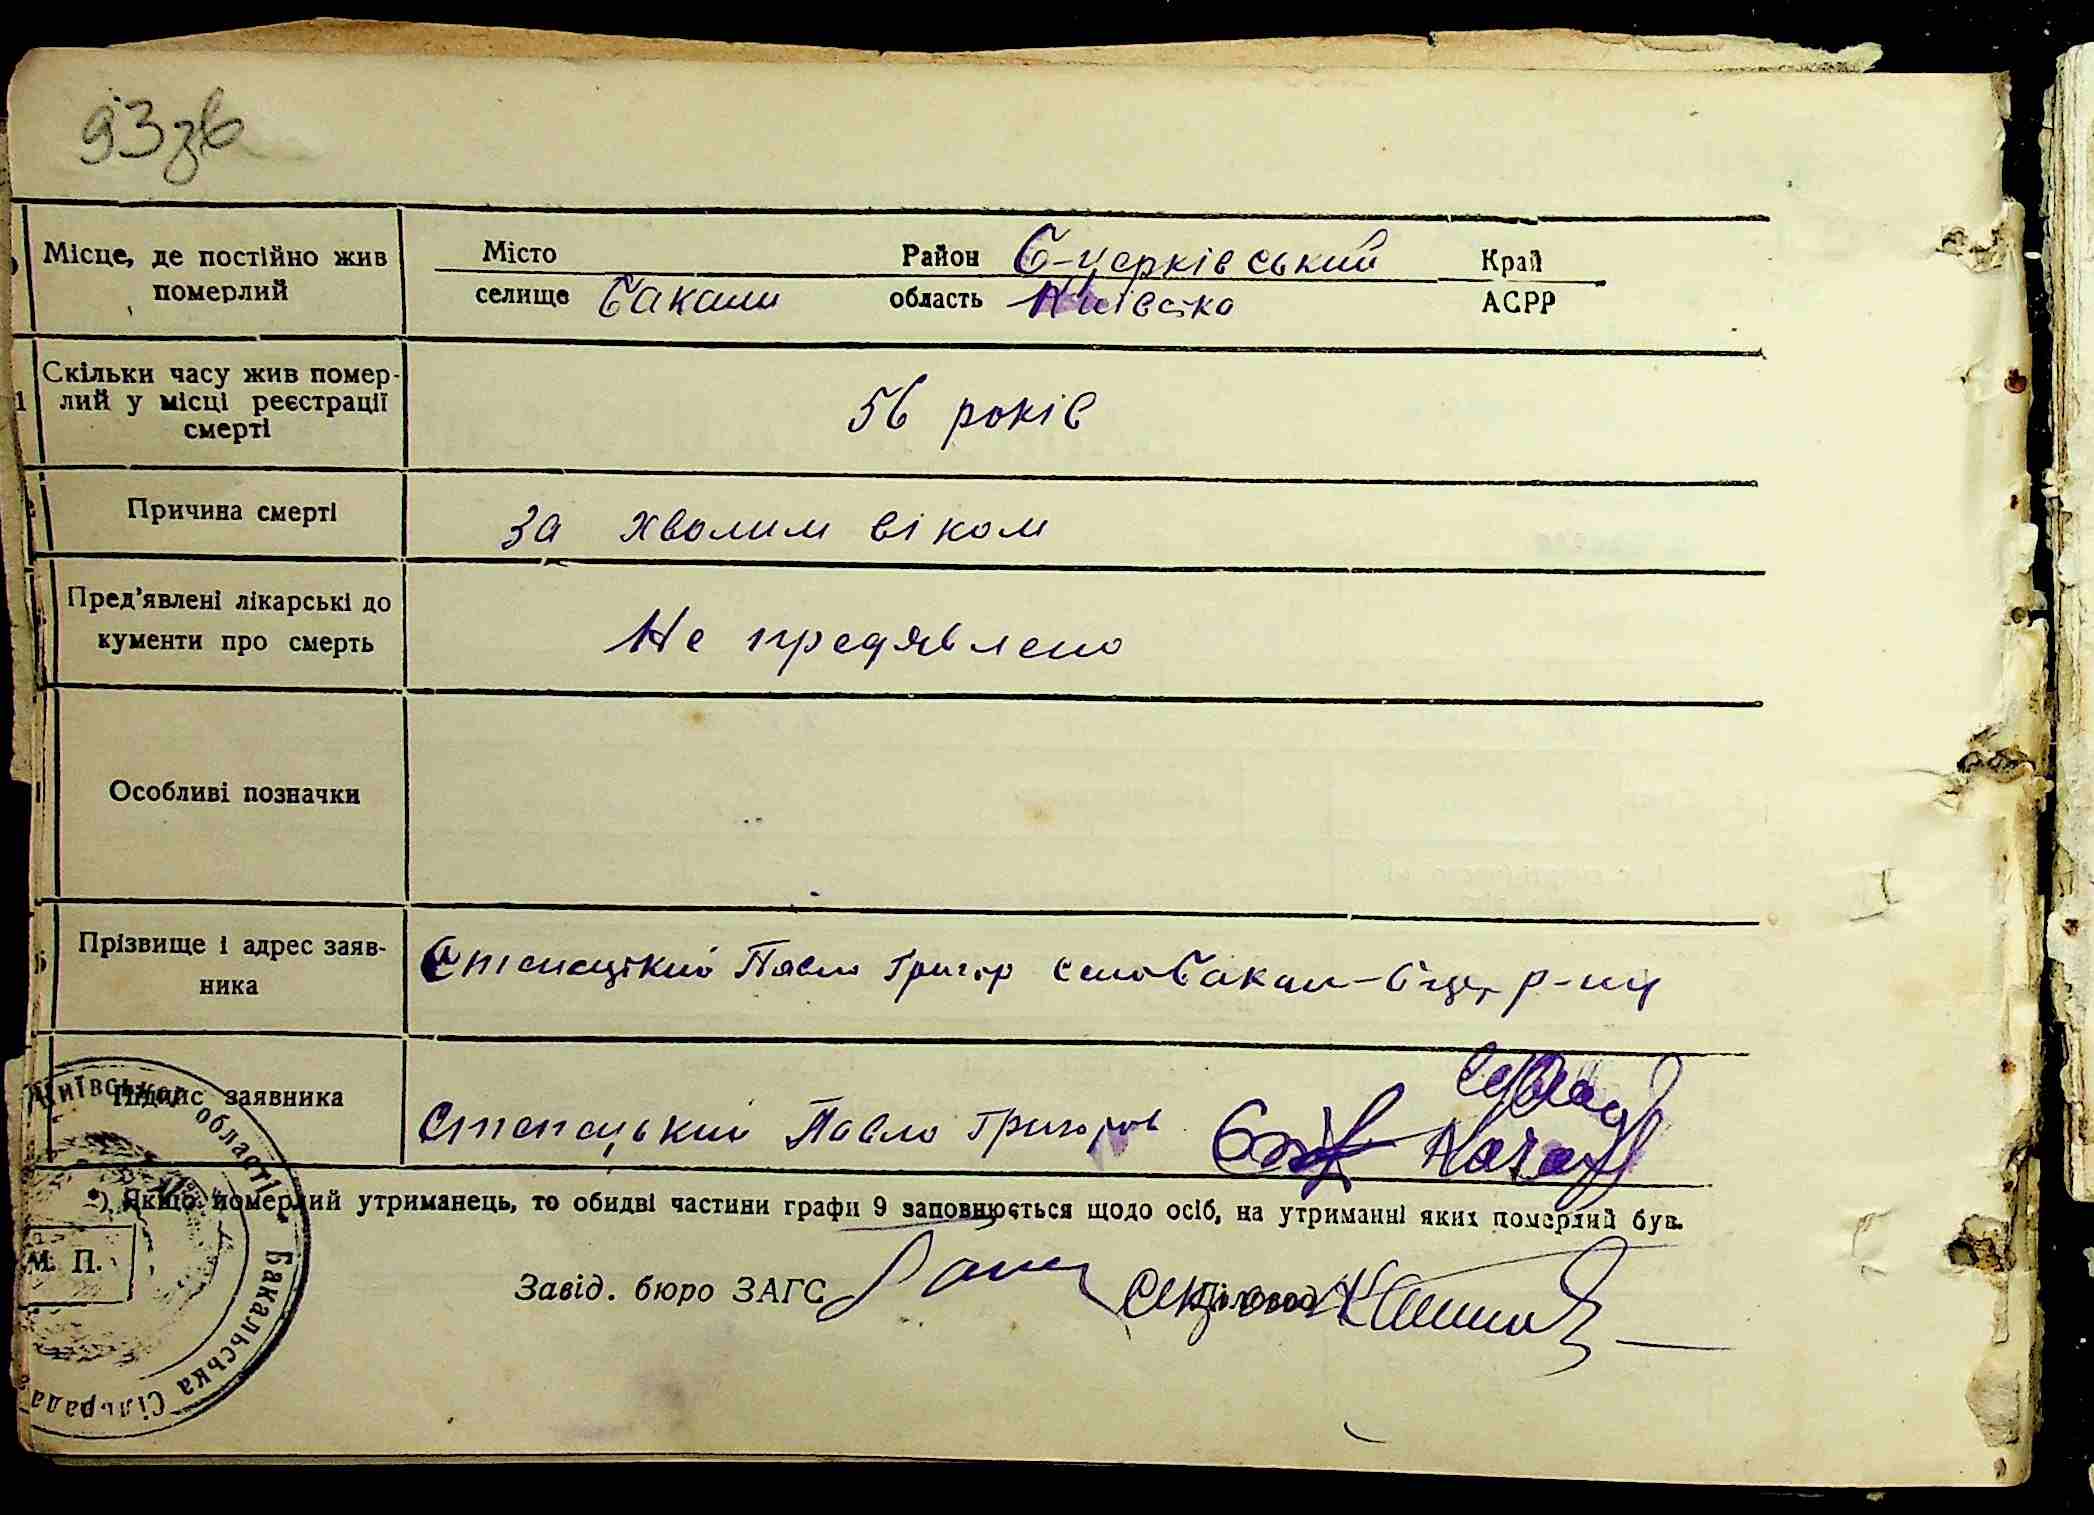 93зв
Місце, де постійно жив
померлий
Місто Район Б-церківський Край
селище Бакали область Київська АСРР
1 Скільки часу жив помер-
лий у місці реєстрації
смерті
56 років
Причина смерті
За хволим віком
Пред'явлені лікарські до
кументи про смерть
Не предявлено
Особливі позначки
5 Прізвище і адрес заяв-
ника
Степацікий Павло Григор село Бакали-Бцер, р-ну
Підпис заявника
Степацький Павло Григоров
*) Якщо померлий утриманець, то обидві частини графи 9 заповнюється щодо осіб, на утриманні яких померлий був.
М. П.
Завід. бюро ЗАГС Діловод
Київської області Бакальська Сільрада